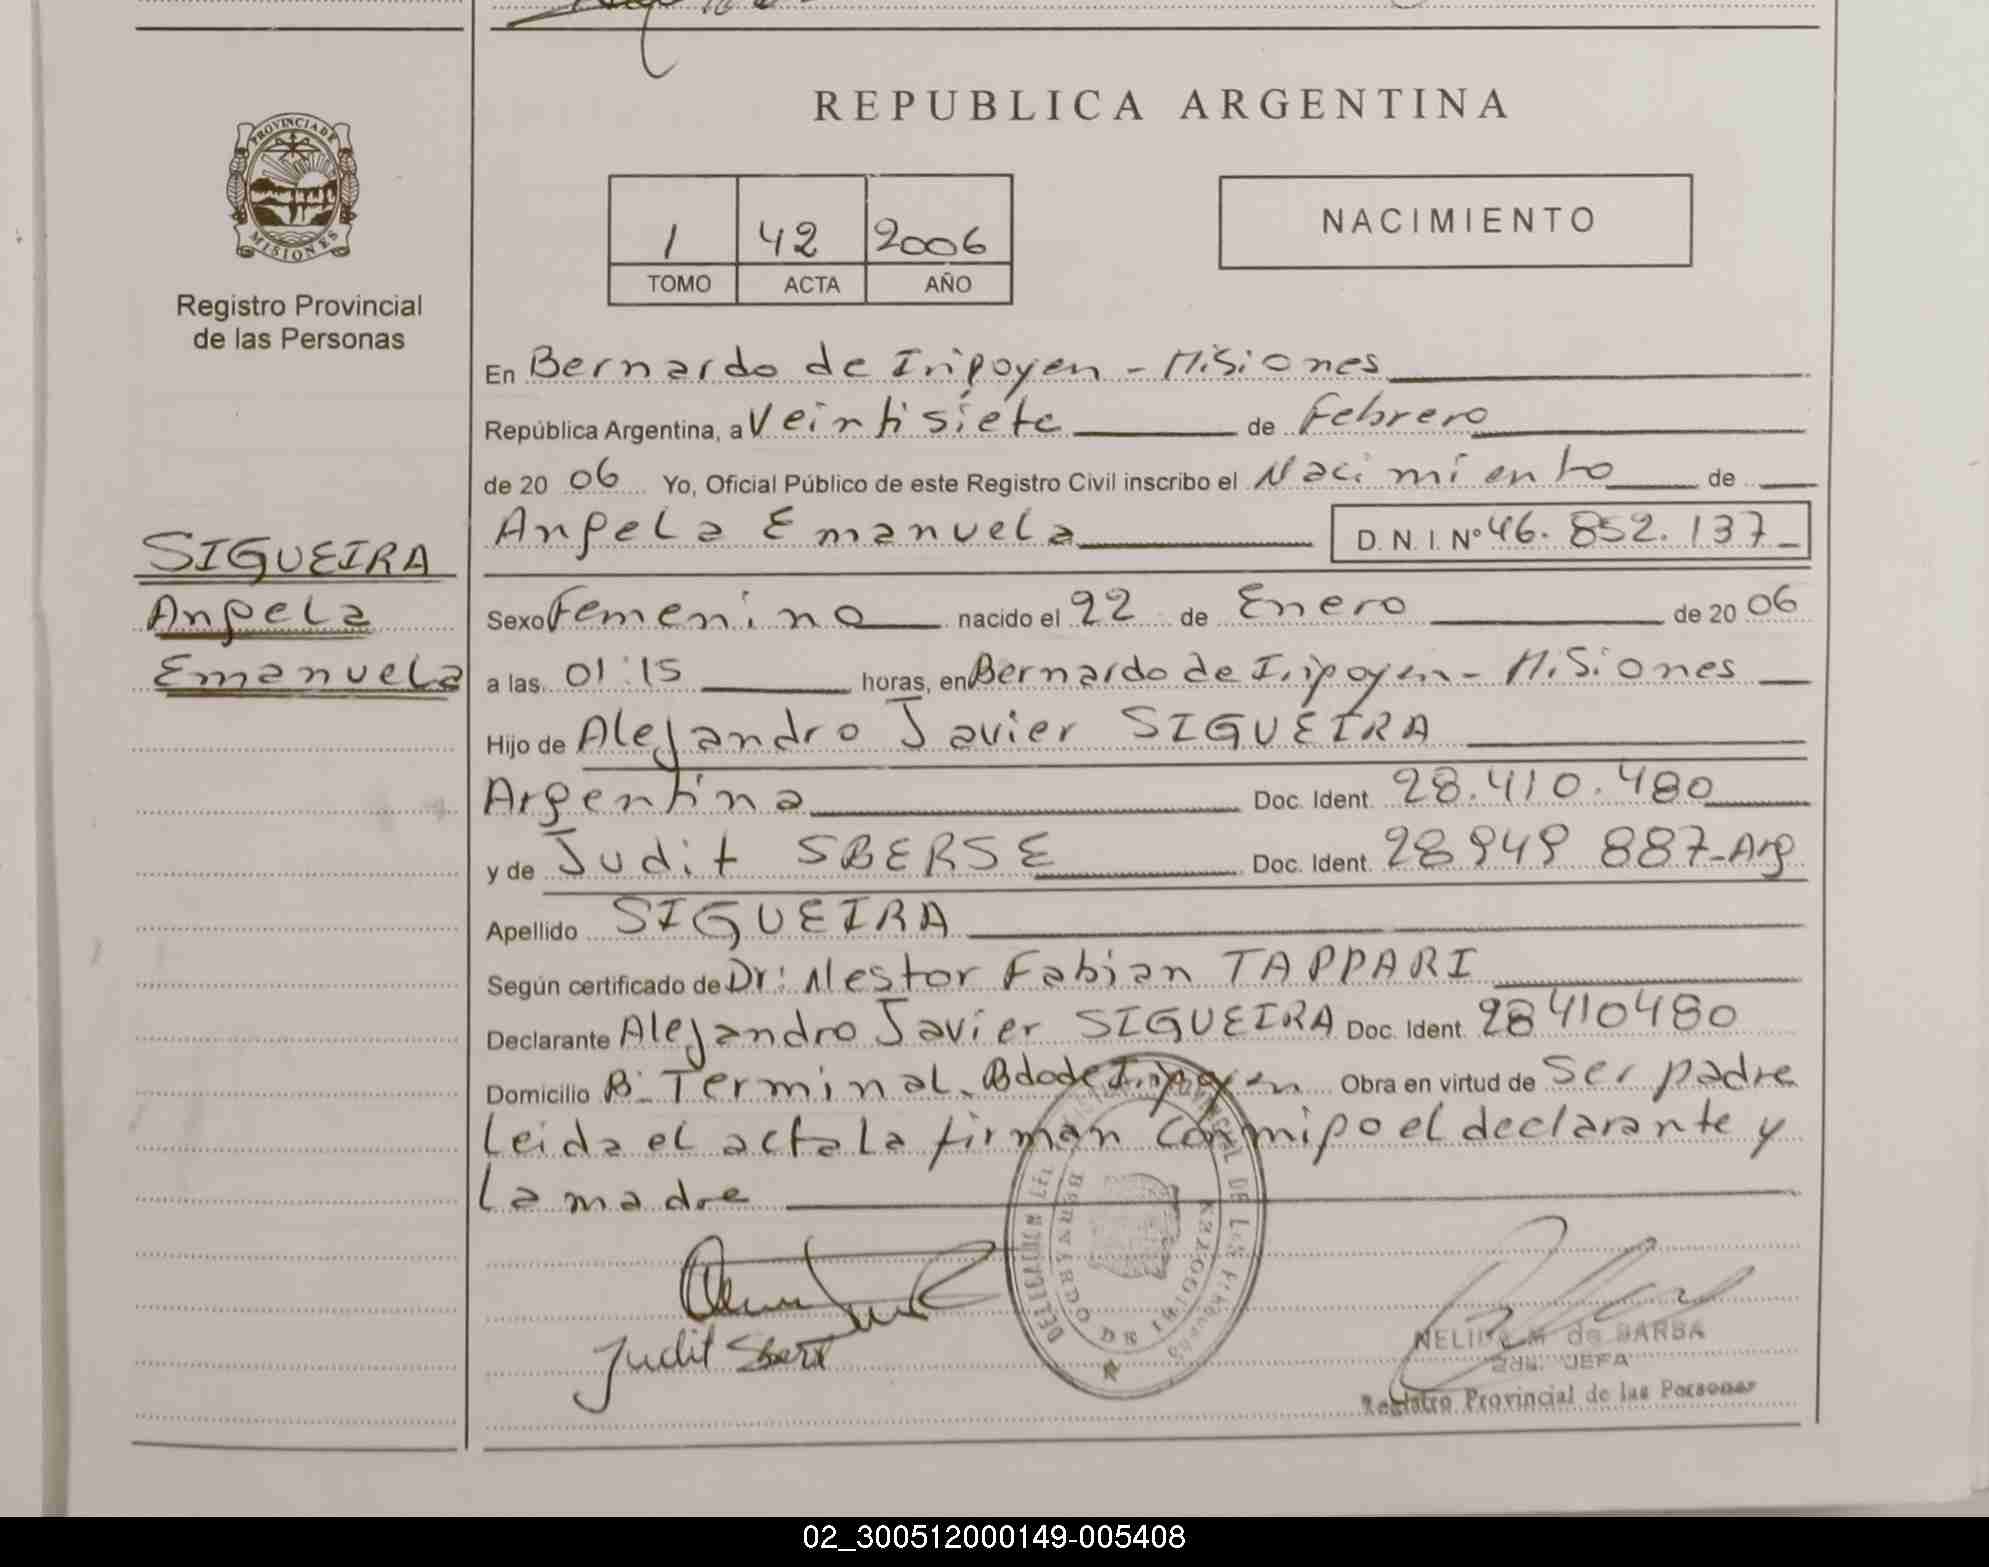 REPUBLICA ARGENTINA
PROVINCIA DE
MISIONES
Registro Provincial
de las Personas
1 42 2006
TOMO ACTA AÑO
NACIMIENTO
SIGUEIRA
Angela
Emanuela
En Bernardo de Irigoyen - Misiones
República Argentina, a Veintisiete de Febrero
de 20 06 Yo, Oficial Público de este Registro Civil inscribo el Nacimiento de
Angela Emanuela D. N. I. Nº 46.852.137
Sexo Femenino nacido el 22 de Enero de 20 06
a las 01:15 horas, en Bernardo de Irigoyen - Misiones
Hijo de Alejandro Javier SIGUEIRA
Argentina Doc. Ident. 28.410.480
y de Judit SBERSE Doc. Ident. 28949 887-Arg
Apellido SIGUEIRA
Según certificado de Dr: Nestor Fabian TAPPARI
Declarante Alejandro Javier SIGUEIRA Doc. Ident. 28410480
Domicilio Bº Terminal. Bdo de Irigoyen Obra en virtud de Ser padre
Leida el acta la firman conmigo el declarante y
la madre
Judit Sbers
DELEGACION PROVINCIAL DE LAS
BERNARDO DE IRIGOYEN
NELIDA M. de BARBA
JEFA
Registro Provincial de las Personas
02_300512000149-005408